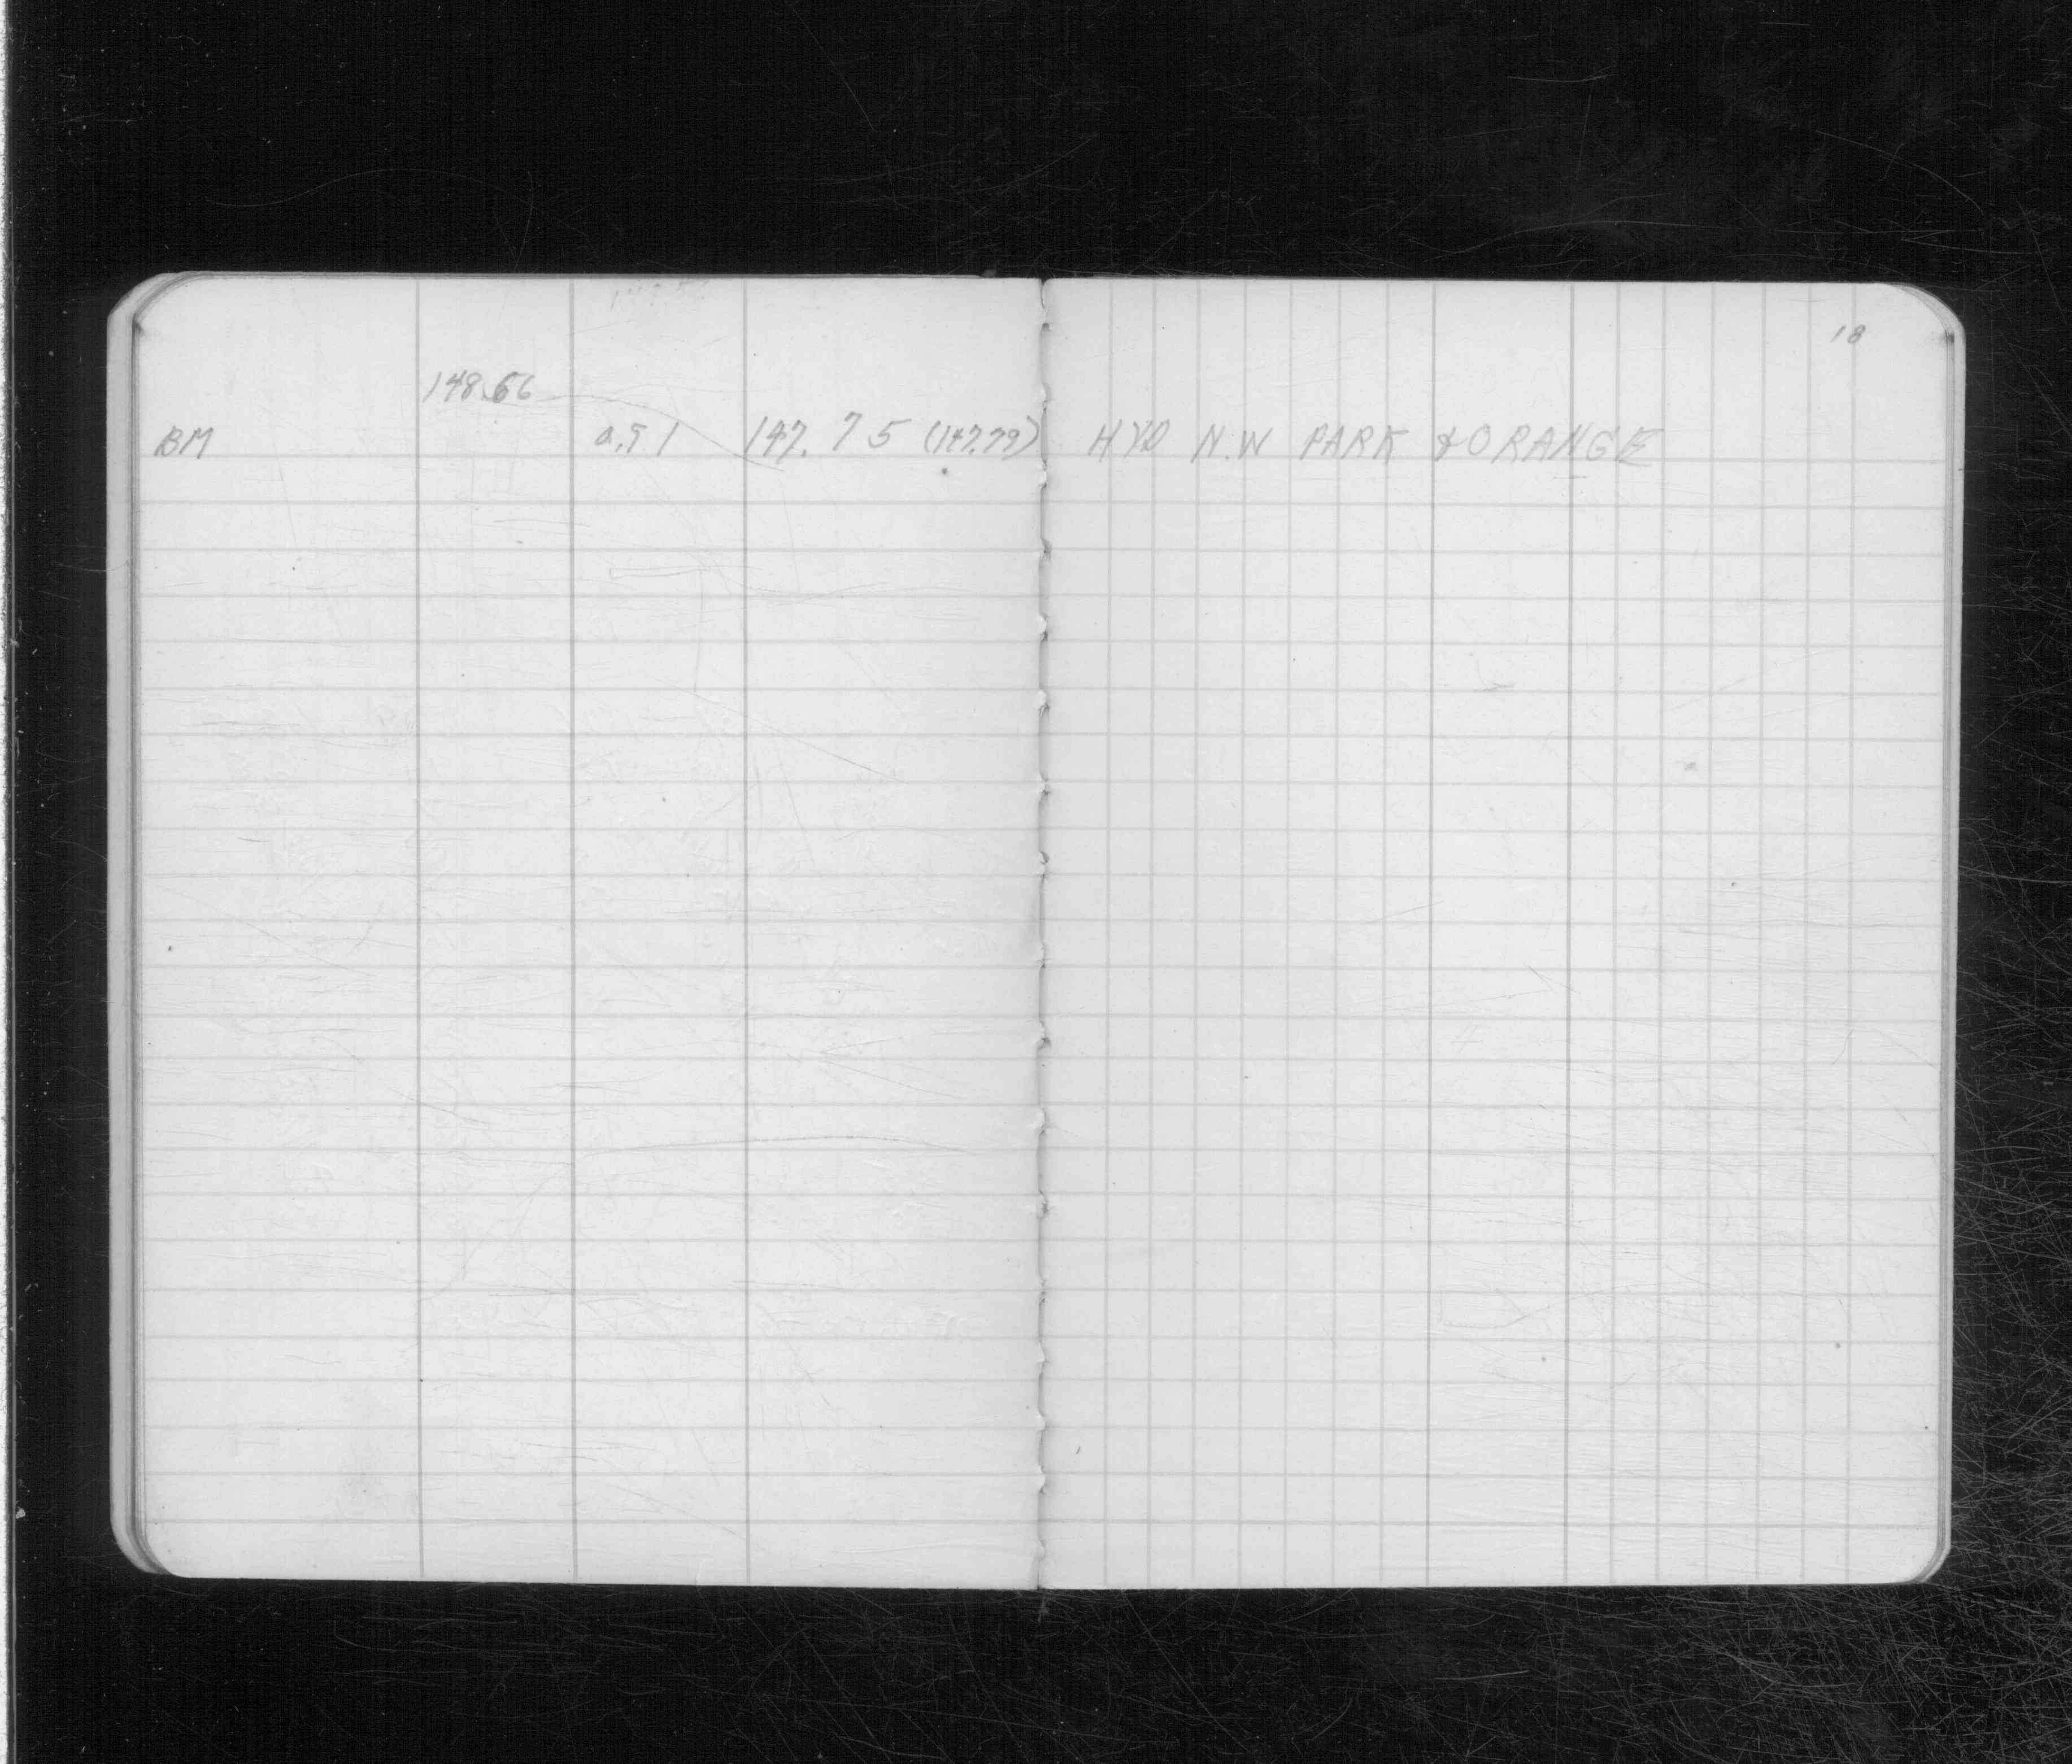 18
148.66
BM 0.91 147.75 (147.79) HYD N.W PARK & ORANGE